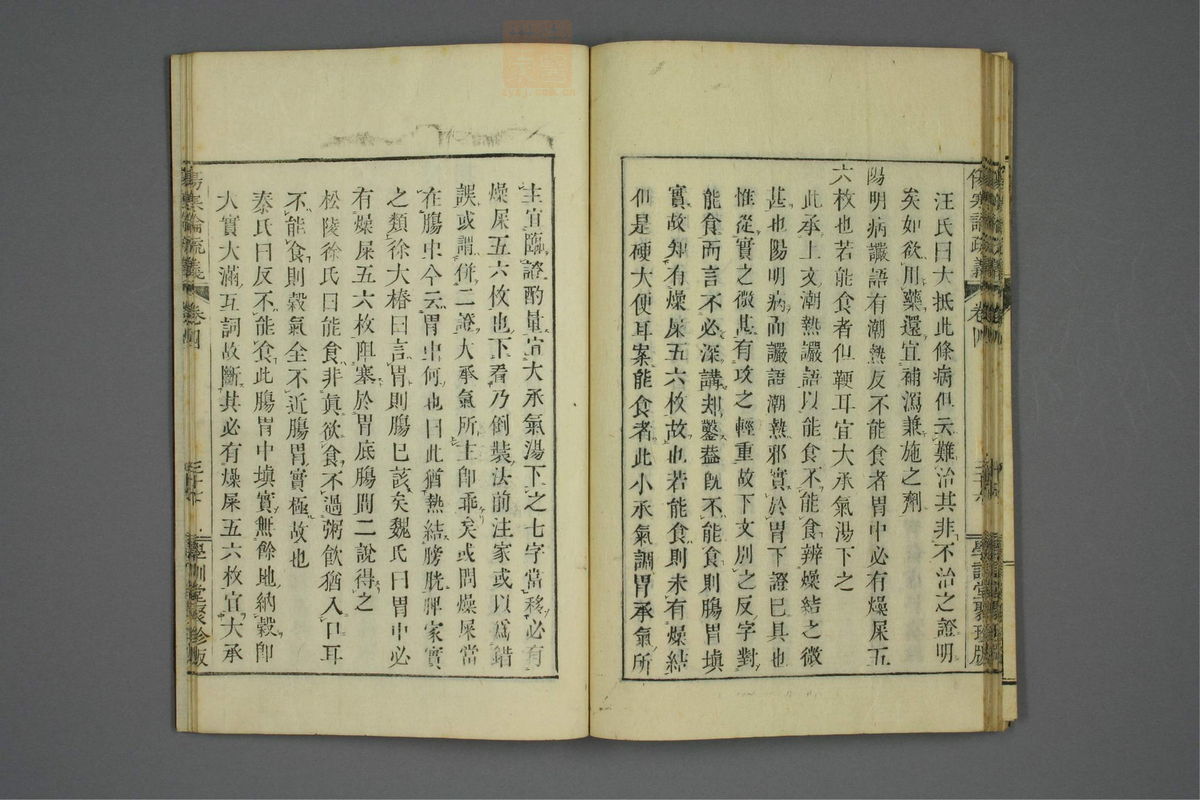 汪氏曰大抵此條病但云難治其非不治之證明
矣如欲用藥還宜補瀉兼施之劑
陽明病讝語有潮熱反不能食者胃中必有燥屎五
六枚也若能食者但鞕耳宜大承氣湯下之
此承上文潮熱讝語以能食不能食辨燥結之微
甚也陽明病而讝語潮熱邪實於胃下證已具也
惟從實之微甚有攻之輕重故下文別之反字對
能食而言不必深講却鑿蓋旣不能食則腸胃塡
實故知有燥屎五六枚故也若能食則未有燥結
但是硬大便耳案能食者此小承氣調胃承氣所
主宜臨證酌量宜大承氣湯下之七字當移必有
燥屎五六枚也下看乃倒裝法前注家或以爲錯
誤或謂併二證大承氣所主卽乖矣或問燥屎當
在腸中今云胃中何也曰此猶熱結膀胱脾家實
之類徐大椿曰言胃則腸已該矣魏氏曰胃中必
有燥屎五六枚阻塞於胃底腸間二說得之
松陵徐氏曰能食非眞欲食不過粥飮猶入口耳
不能食則穀氣全不近腸胃實極故也
秦氏曰反不能食此腸胃中塡實無餘地納穀卽
大實大滿互詞故斷其必有燥屎五六枚宜大承
傷寒論疏義
卷四
學訓堂聚珍版